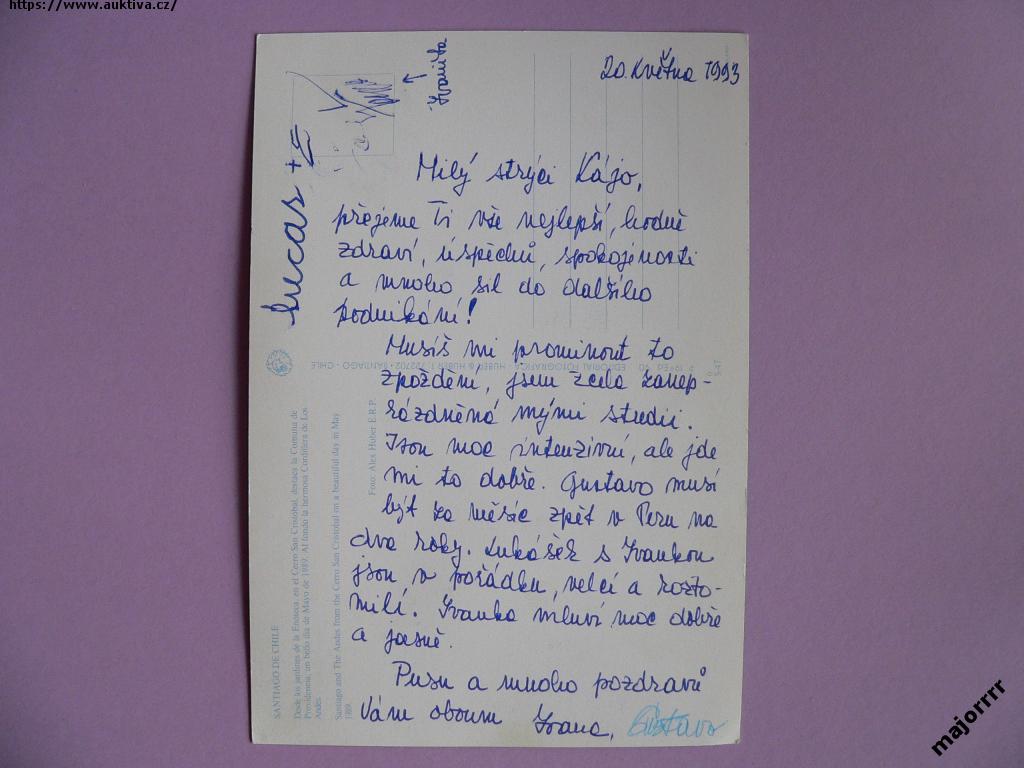 https://www.auktiva.cz/
20. Května 1993
Ivanita
Lucas
Milý strýci Kájo,
přejeme Ti vše nejlepší, hodně
zdraví, úspěchů, spokojenosti
a mnoho sil do dalšího
podnikání!
Musíš mi prominout to
zpoždění, jsem zcela zanep-
rázdněná mými studii.
Json moc intenzivní, ale jde
mi to dobře. Gustavo musí
být za měsíc zpět v Peru na
dva roky. Lukášek s Ivankou
json v pořádku, velcí a rozto-
milí. Ivanka mluví moc dobře
a jasně.
Pusu a mnoho pozdravů
Vám oboum Ivana, Gustavo
SANTIAGO DE CHILE
Desde los jardines de la Enoteca, en el Cerro San Cristóbal, destaca la Comuna de
Providencia, un bello día de Mayo de 1989. Al fondo la hermosa Cordillera de Los
Andes.
Santiago and The Andes from the Cerro San Cristobal on a beautiful day in May
189.
Foto: Alex Huber E.R.P.
EDITORIAL FOTOGRAFICA HUBER & HUBER T. 722702 • SANTIAGO - CHILE
S-47
majorrrr